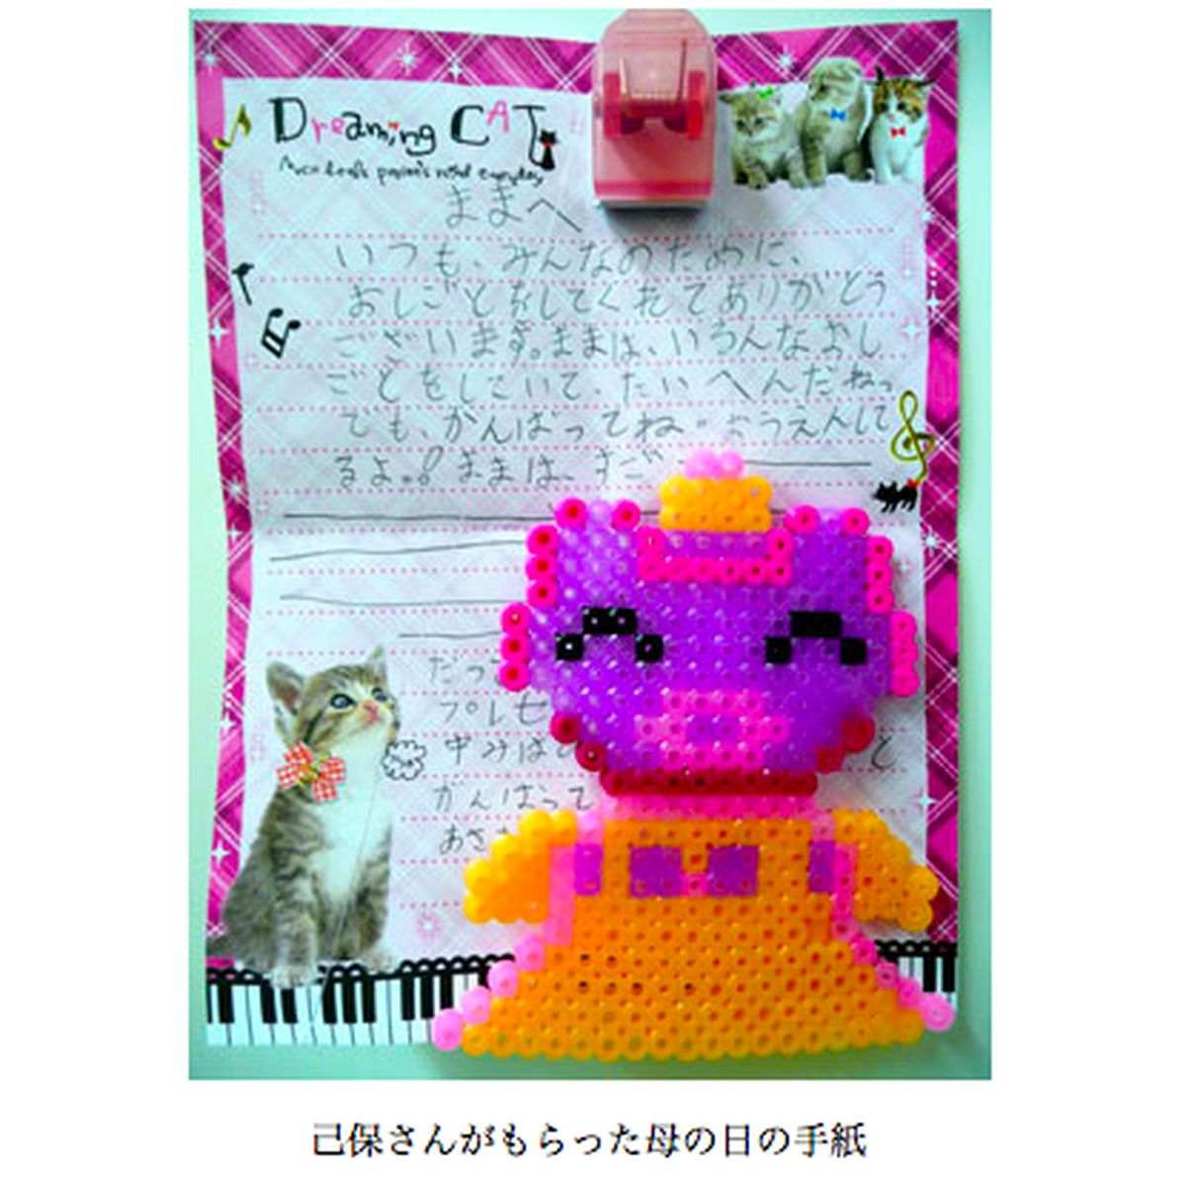 Dreaming CAT
ままへ
いつも、みんなのために、
おしごとをしてくれてありがとう
ございます。ままは、いろんなおし
ごとをしていて、たいへんだねっ
でも、がんばってね。おうえんして
るよ。！ままは、すご
だっ
プレゼ
中みは
がんばって
あさ
己保さんがもらった母の日の手紙